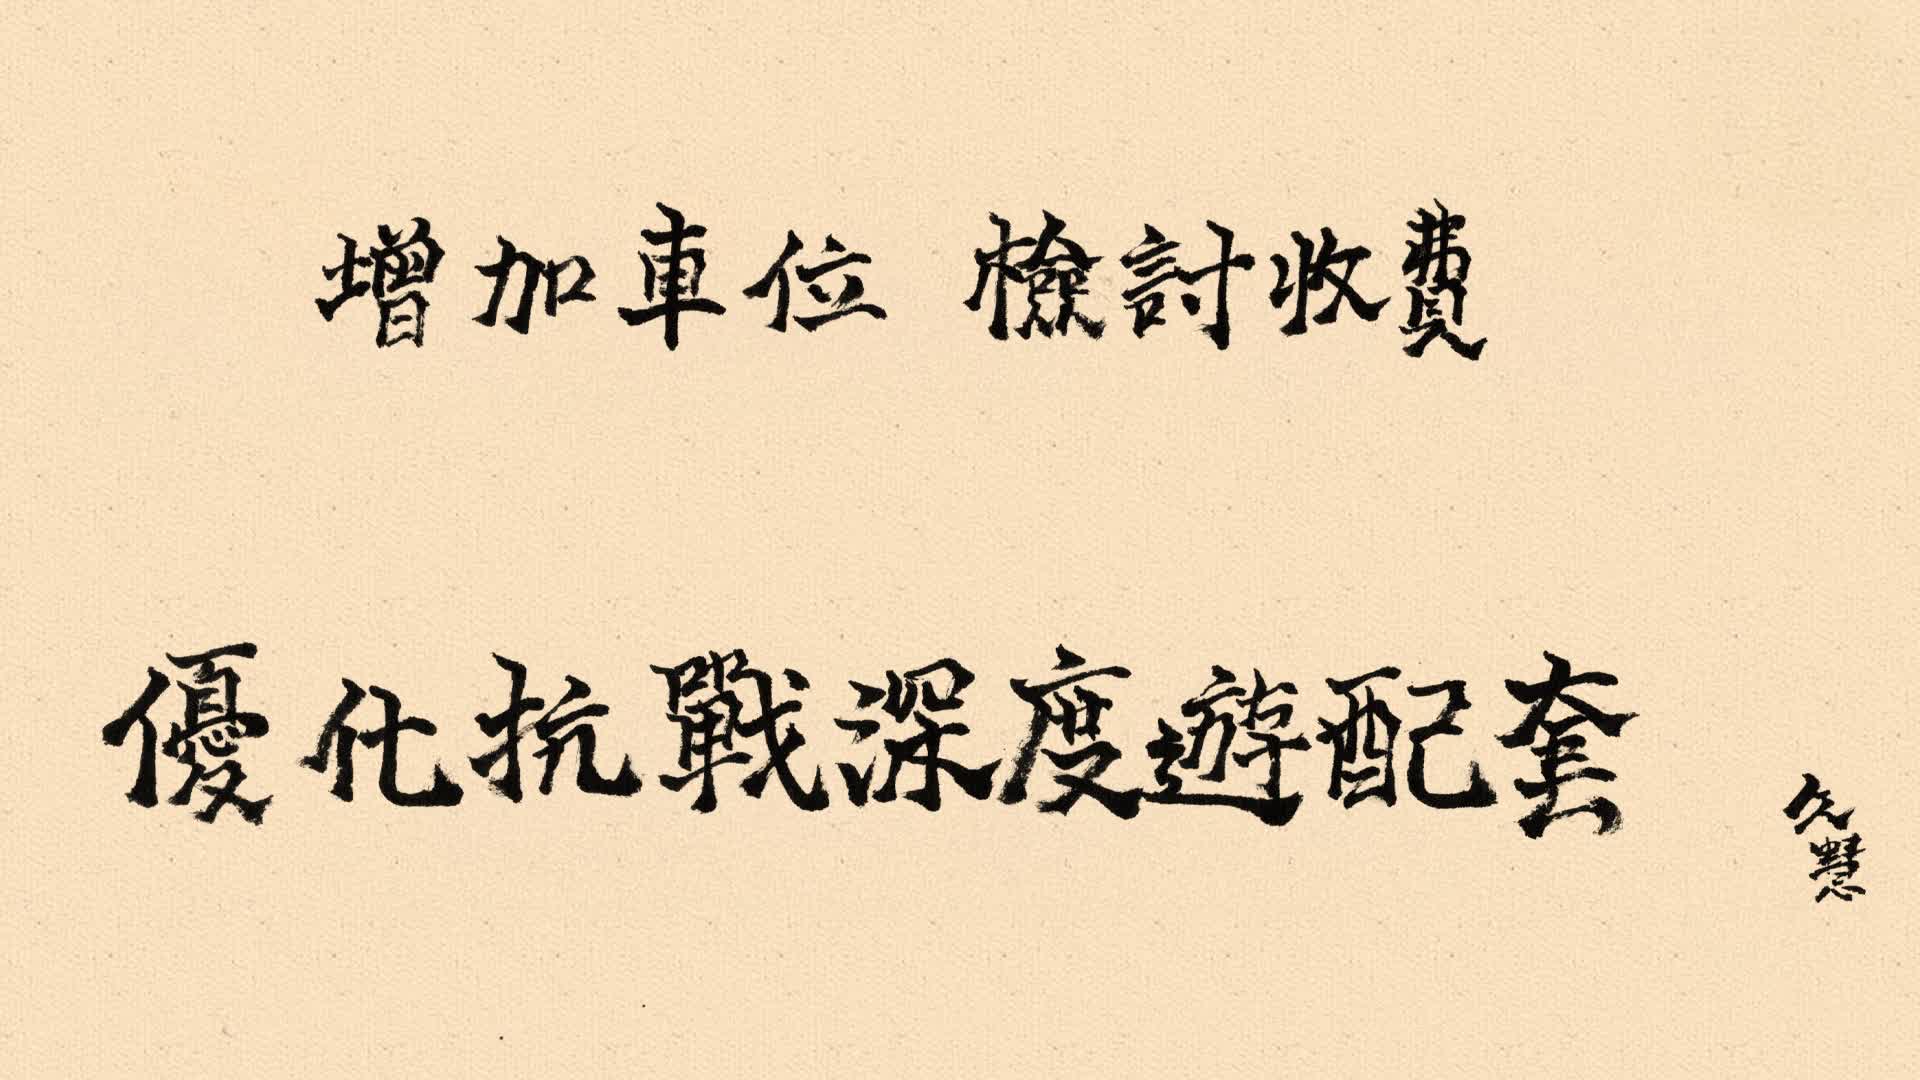 增加車位 檢討收費
優化抗戰深度遊配套
久慧